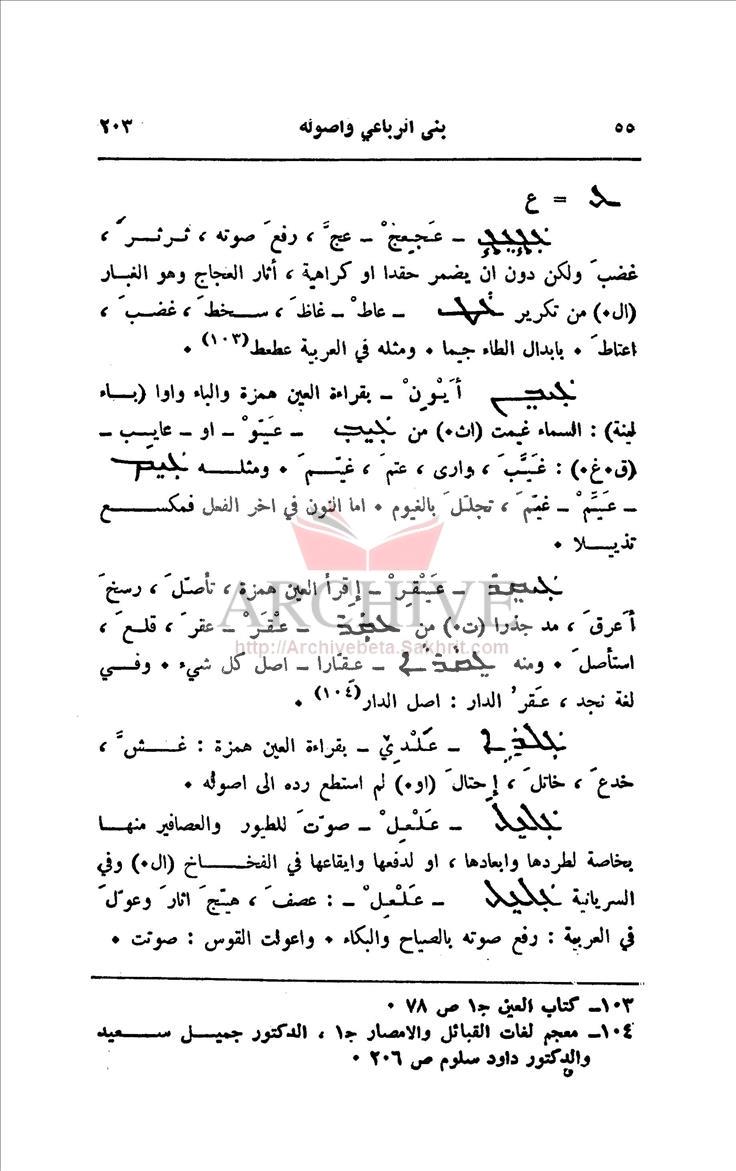 ٥٥ بنى الرباعي واصوله ٢٠٣
ܥ = ع
ـ عَجيعِجْ ـ عجَّ ، رفعَ صوته ، ثرثرَ ،
غضبَ ولكن دون ان يضمر حقدا او كراهية ، أثار العجاج وهو الغبار
(ال٠) من تكرير ـ عاطْ ـ غاظَ ، سخطَ ، غضبَ ،
اغتاطَ ٠ بابدال الطاء جيما ٠ ومثله في العربية عطعط(١٠٣) ٠
أَيْوِنْ ـ بقراءة العين همزة والباء واوا (بـاء
لينة) : السماء غيمت (اث٠) من ـ عَيَوْ ـ او ـ عايب ـ
(ق٠غ٠) : غَيَّبَ ، وارى ، عتمَ ، غيّمَ ٠ ومثلـه
ـ عَيِّمْ ـ غيّمَ ، تجلّلَ بالغيوم ٠ اما النون في اخر الفعل فمكسـع
تذييلا ٠
ـ عَيْقِرْ ـ إقرأ العين همزة ، تأصّلَ ، رسخَ
أعرقَ ، مد جذرا (ت٠) من ـ عْقَرْ ـ عقرَ ، قلعَ ،
استأصلَ ٠ ومنه ـ عـقّارا ـ اصل كل شيء ٠ وفـي
لغة نجد ، عـقرُ الدار : اصل الدار(١٠٤) ٠
ـ عَلْدِيْ ـ بقراءة العين همزة : غـشَّ ،
خدعَ ، خاتلَ ، إحتالَ (او٠) لم استطع رده الى اصوله ٠
ـ عَلْعِلْ ـ صوّتَ للطيور والعصافير منهـا
بخاصة لطردها وابعادها ، او لدفعها وايقاعها في الفخـاخ (ال٠) وفي
السريانية ـ عَلْعِلْ ـ : عصفَ ، هيّجَ اثارَ وعوّلَ
في العربية : رفع صوته بالصياح والبكاء ٠ واعولت القوس : صوتت ٠
١٠٣ـ كتاب العين ج١ ص ٧٨ ٠
١٠٤ـ معجم لغات القبائل والامصار ج١ ، الدكتور جميـل سـعيد
والدكتور داود سلوم ص ٢٠٦ ٠
ARCHIVE
http://Archivebeta.Sakhrit.com